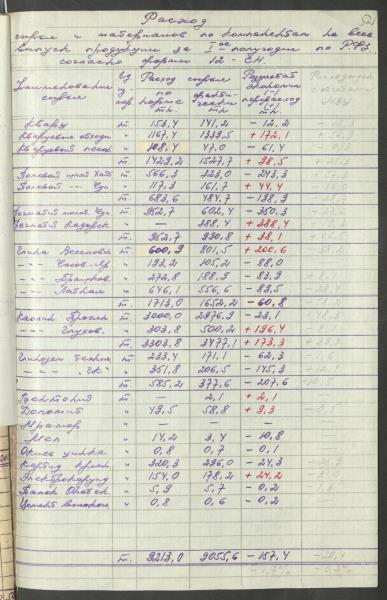 52
Расход
сырья и материалов по компонентам на весь
выпуск продукции за I-ое полугодие по
согласно формы 12-СН.
Наименование сырья Ед. Расход сырья по норме тн. фактически тн. Результат экономия (-) перерасход (+) тн.
Кварц т. 153,4 141,2 - 12,2
Кварцевые отходы " 1167,4 1339,5 + 172,1
Кварцевый песок " 108,4 47,0 - 61,4
т. 1429,2 1527,7 + 98,5
Полевой шпат т. 566,3 323,0 - 243,3
Полевой " 117,3 161,7 + 44,4
т. 683,6 484,7 - 198,9
Пегматит т. 952,7 602,4 - 350,3
Пегматит " — 388,4 + 388,4
т. 952,7 990,8 + 38,1
Глина Веселовск т. 600,9 801,5 + 200,6
--- Часов-Яр " 193,2 105,2 - 88,0
--- " 272,8 188,9 - 83,9
--- Латнен " 646,1 556,6 - 83,5
т. 1713,0 1652,2 - 60,8
Каолин Просян т. 3000,0 2976,9 - 23,1
--- Глухов. " 303,8 500,2 + 196,4
т. 3303,8 3477,1 + 173,3
Глинозем т. 233,4 171,1 - 62,3
--- " 351,8 206,5 - 145,3
т. 585,2 377,6 - 207,6
Бентонит т. — 2,1 + 2,1
Доломит " 49,5 58,8 + 9,3
Мрамор " — — —
Мел " 14,2 3,4 - 10,8
Окись цинка " 0,8 0,7 - 0,1
Карбид кремн " 320,3 296,0 - 24,3
Электрокорунд " 154,0 178,2 + 24,2
" 5,9 5,7 - 0,2
Цемент " 0,8 0,6 - 0,2
т. 9213,0 9055,6 - 157,4